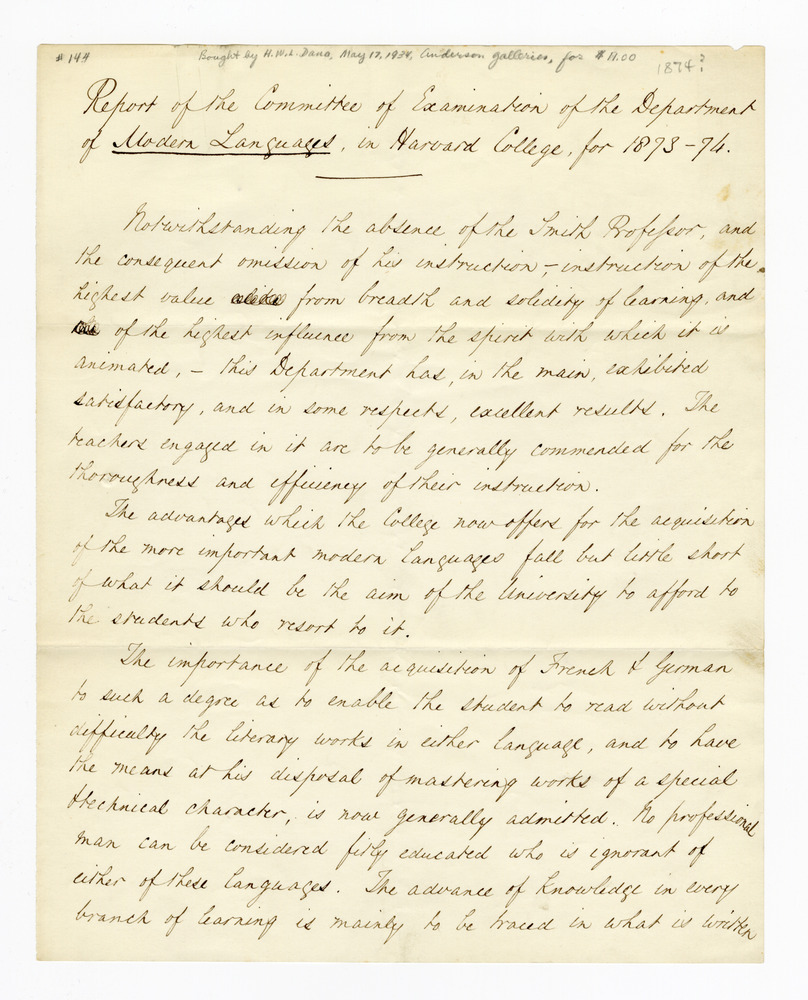 # 144
Bought by H.W.L. Dana, May 17, 1934, Anderson Galleries, for $
1874?
Report of the Committee of Examination of the Department
of Modern Languages, in Harvard College, for 1873-74.
Notwithstanding the absence of the Smith Professor, and
the consequent omission of his instruction, - instruction of the
highest value from breadth and solidity of learning, and
of the highest influence from the spirit with which it is
animated, - this Department has, in the main, exhibited
satisfactory, and in some respects, excellent results. The
teachers engaged in it are to be generally commended for the
thoroughness and efficiency of their instruction.
The advantages which the College now offers for the acquisition
of the more important modern languages fall but little short
of what it should be the aim of the University to afford to
the students who resort to it.
The importance of the acquisition of French & German
to such a degree as to enable the student to read without
difficulty the literary works in either language, and to have
the means at his disposal of mastering works of a special
& technical character, is now generally admitted. No professional
man can be considered fitly educated who is ignorant of
either of these languages. The advance of knowledge in every
branch of learning is mainly to be traced in what is written